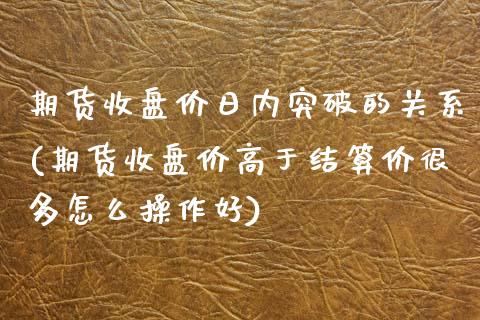 期货收盘价日内突破的关系
(期货收盘价高于结算价很
多怎么操作好)